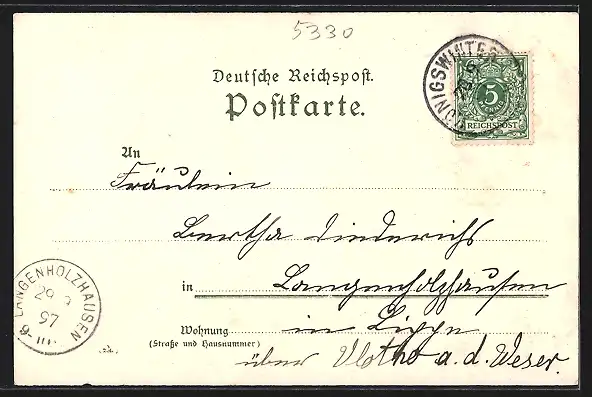 5330
Deutsche Reichspost.
Postkarte.
KÖNIGSWINTER
5
REICHSPOST
An
Fräulein
Bertha Diederichs
in Langenholzhausen
Wohnung in Lippe
(Straße und Hausnummer)
über Vlotho a. d. Weser.
LANGENHOLZHAUSEN
29
97